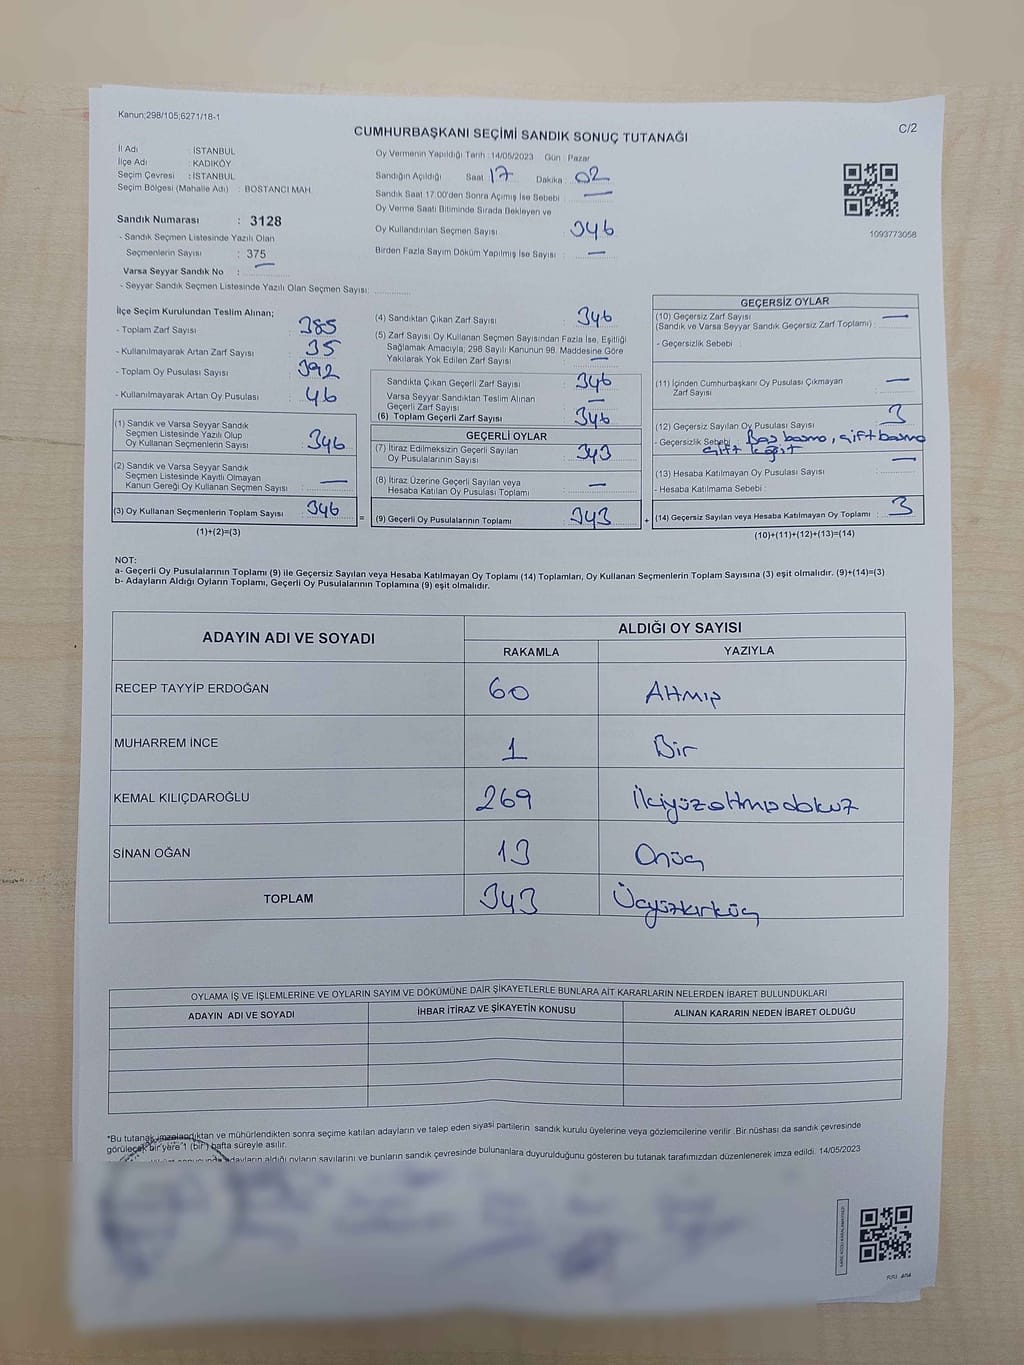 Kanun;298/105;6271/18-1
C/2
CUMHURBAŞKANI SEÇİMİ SANDIK SONUÇ TUTANAĞI
İl Adı : İSTANBUL
İlçe Adı : KADIKÖY
Seçim Çevresi : İSTANBUL
Seçim Bölgesi (Mahalle Adı) : BOSTANCI MAH.
Sandık Numarası : 3128
- Sandık Seçmen Listesinde Yazılı Olan
Seçmenlerin Sayısı : 375
Varsa Seyyar Sandık No : —
- Seyyar Sandık Seçmen Listesinde Yazılı Olan Seçmen Sayısı: ............
Oy Vermenin Yapıldığı Tarih : 14/05/2023 Gün : Pazar
Sandığın Açıldığı Saat 17 Dakika 02
Sandık Saat 17:00'den Sonra Açımış İse Sebebi : —
Oy Verme Saati Bitiminde Sırada Bekleyen ve
Oy Kullandırılan Seçmen Sayısı : 346
Birden Fazla Sayım Döküm Yapılmış İse Sayısı : —
1093773058
İlçe Seçim Kurulundan Teslim Alınan;
- Toplam Zarf Sayısı : 385
- Kullanılmayarak Artan Zarf Sayısı : 35
- Toplam Oy Pusulası Sayısı : 392
- Kullanılmayarak Artan Oy Pusulası : 46
(1) Sandık ve Varsa Seyyar Sandık
Seçmen Listesinde Yazılı Olup
Oy Kullanan Seçmenlerin Sayısı : 346
(2) Sandık ve Varsa Seyyar Sandık
Seçmen Listesinde Kayıtlı Olmayan
Kanun Gereği Oy Kullanan Seçmen Sayısı : —
(3) Oy Kullanan Seçmenlerin Toplam Sayısı : 346
(1)+(2)=(3)
=
(4) Sandıktan Çıkan Zarf Sayısı : 346
(5) Zarf Sayısı Oy Kullanan Seçmen Sayısından Fazla İse, Eşitliği
Sağlamak Amacıyla; 298 Sayılı Kanunun 98. Maddesine Göre
Yakılarak Yok Edilen Zarf Sayısı : —
Sandıkta Çıkan Geçerli Zarf Sayısı : 346
Varsa Seyyar Sandıktan Teslim Alınan
Geçerli Zarf Sayısı : —
(6) Toplam Geçerli Zarf Sayısı : 346
GEÇERLİ OYLAR
(7) İtiraz Edilmeksizin Geçerli Sayılan
Oy Pusulalarının Sayısı : 343
(8) İtiraz Üzerine Geçerli Sayılan veya
Hesaba Katılan Oy Pusulası Toplamı : —
(9) Geçerli Oy Pusulalarının Toplamı : 343
+
GEÇERSİZ OYLAR
(10) Geçersiz Zarf Sayısı
(Sandık ve Varsa Seyyar Sandık Geçersiz Zarf Toplamı) : —
- Geçersizlik Sebebi :
(11) İçinden Cumhurbaşkanı Oy Pusulası Çıkmayan
Zarf Sayısı : —
(12) Geçersiz Sayılan Oy Pusulası Sayısı : 3
- Geçersizlik Sebebi : Boş basma, çift basma
çift kağıt
(13) Hesaba Katılmayan Oy Pusulası Sayısı : —
- Hesaba Katılmama Sebebi :
(14) Geçersiz Sayılan veya Hesaba Katılmayan Oy Toplamı : 3
(10)+(11)+(12)+(13)=(14)
NOT:
a- Geçerli Oy Pusulalarının Toplamı (9) ile Geçersiz Sayılan veya Hesaba Katılmayan Oy Toplamı (14) Toplamları, Oy Kullanan Seçmenlerin Toplam Sayısına (3) eşit olmalıdır. (9)+(14)=(3)
b- Adayların Aldığı Oyların Toplamı, Geçerli Oy Pusulalarının Toplamına (9) eşit olmalıdır.
ADAYIN ADI VE SOYADI
ALDIĞI OY SAYISI
RAKAMLA YAZIYLA
RECEP TAYYİP ERDOĞAN 60 Altmış
MUHARREM İNCE 1 Bir
KEMAL KILIÇDAROĞLU 269 İkiyüzaltmışdokuz
SİNAN OĞAN 13 Onüç
TOPLAM 343 Üçyüzkırküç
OYLAMA İŞ VE İŞLEMLERİNE VE OYLARIN SAYIM VE DÖKÜMÜNE DAİR ŞİKAYETLERLE BUNLARA AİT KARARLARIN NELERDEN İBARET BULUNDUKLARI
ADAYIN ADI VE SOYADI İHBAR İTİRAZ VE ŞİKAYETİN KONUSU ALINAN KARARIN NEDEN İBARET OLDUĞU
*Bu tutanak imzalandıktan ve mühürlendikten sonra seçime katılan adayların ve talep eden siyasi partilerin sandık kurulu üyelerine veya gözlemcilerine verilir .Bir nüshası da sandık çevresinde
görülecek bir yere 1 (bir) hafta süreyle asılır.
adayların aldığı oyların sayılarını ve bunların sandık çevresinde bulunanlara duyurulduğunu gösteren bu tutanak tarafımızdan düzenlenerek imza edildi. 14/05/2023